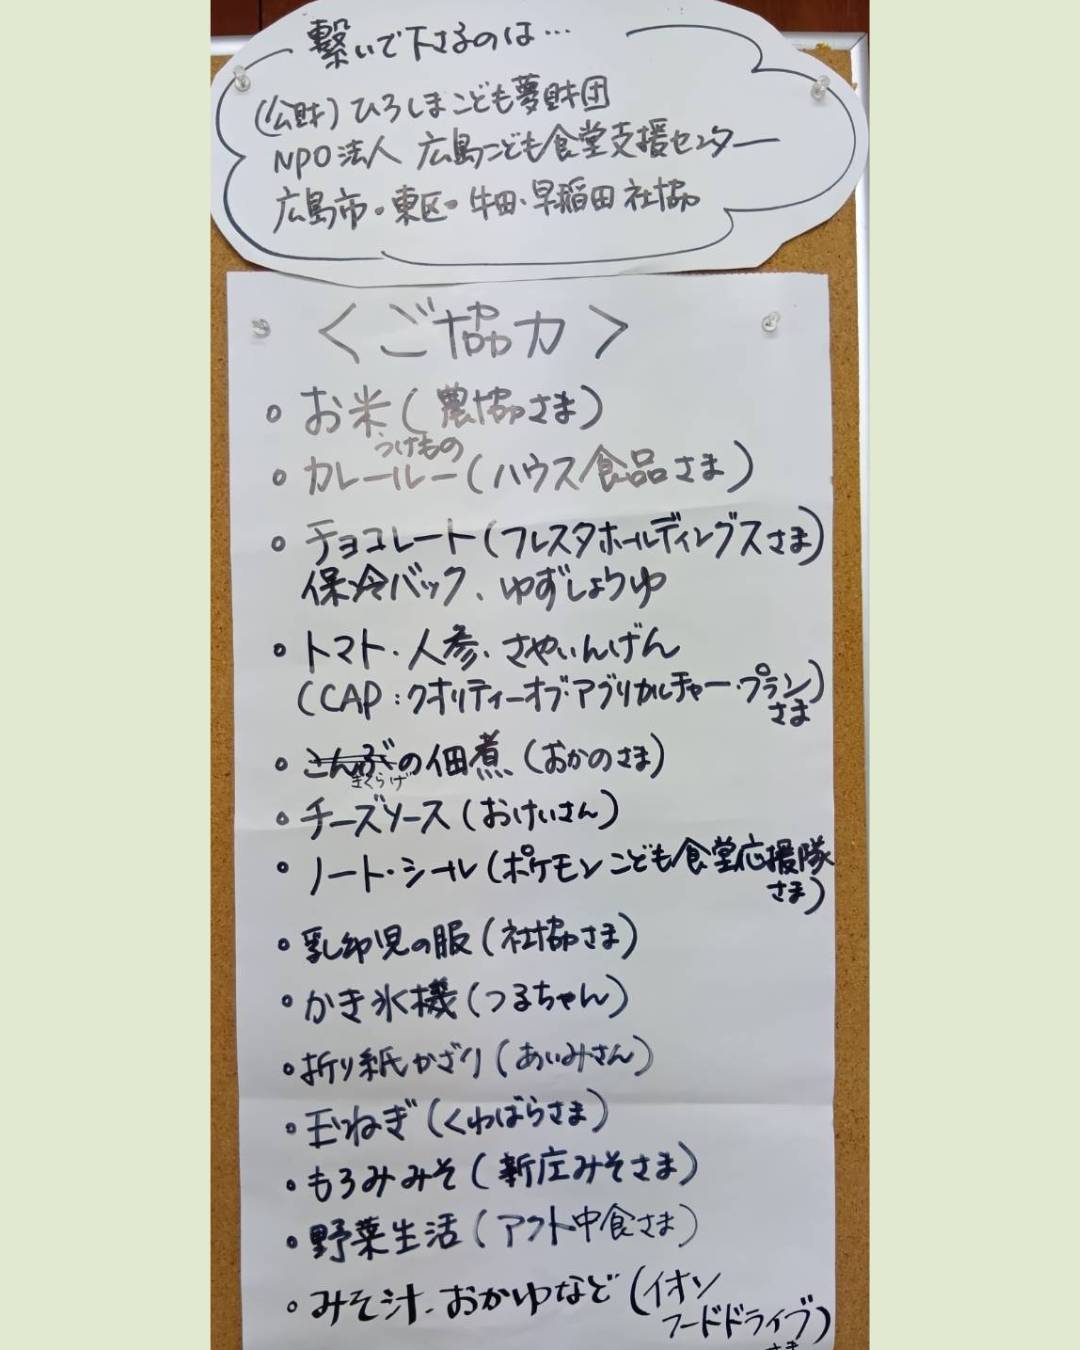 繋いで下さるのは…
(公財)ひろしまこども夢財団
NPO法人 広島こども食堂支援センター
広島市・東区・牛田・早稲田 社協
<ご協力>
・お米(農協さま)
つけもの
・カレールー(ハウス食品さま)
・チョコレート(フレスタホールディングスさま)
保冷バック、ゆずしょうゆ
・トマト・人参・さやいんげん
(CAP:クオリティーオブ・アグリカルチャー・プラン)
さま
・こんぶの佃煮(おかのさま)
きくらげ
・チーズソース(おけいさん)
・ノート・シール(ポケモンこども食堂応援隊
さま)
・乳幼児の服(社協さま)
・かき氷機(つるちゃん)
・折り紙かざり(あいみさん)
・玉ねぎ(くわばらさま)
・もろみみそ(新庄みそさま)
・野菜生活(アクト中食さま)
・みそ汁、おかゆなど(イオン
フードドライブ)
さま